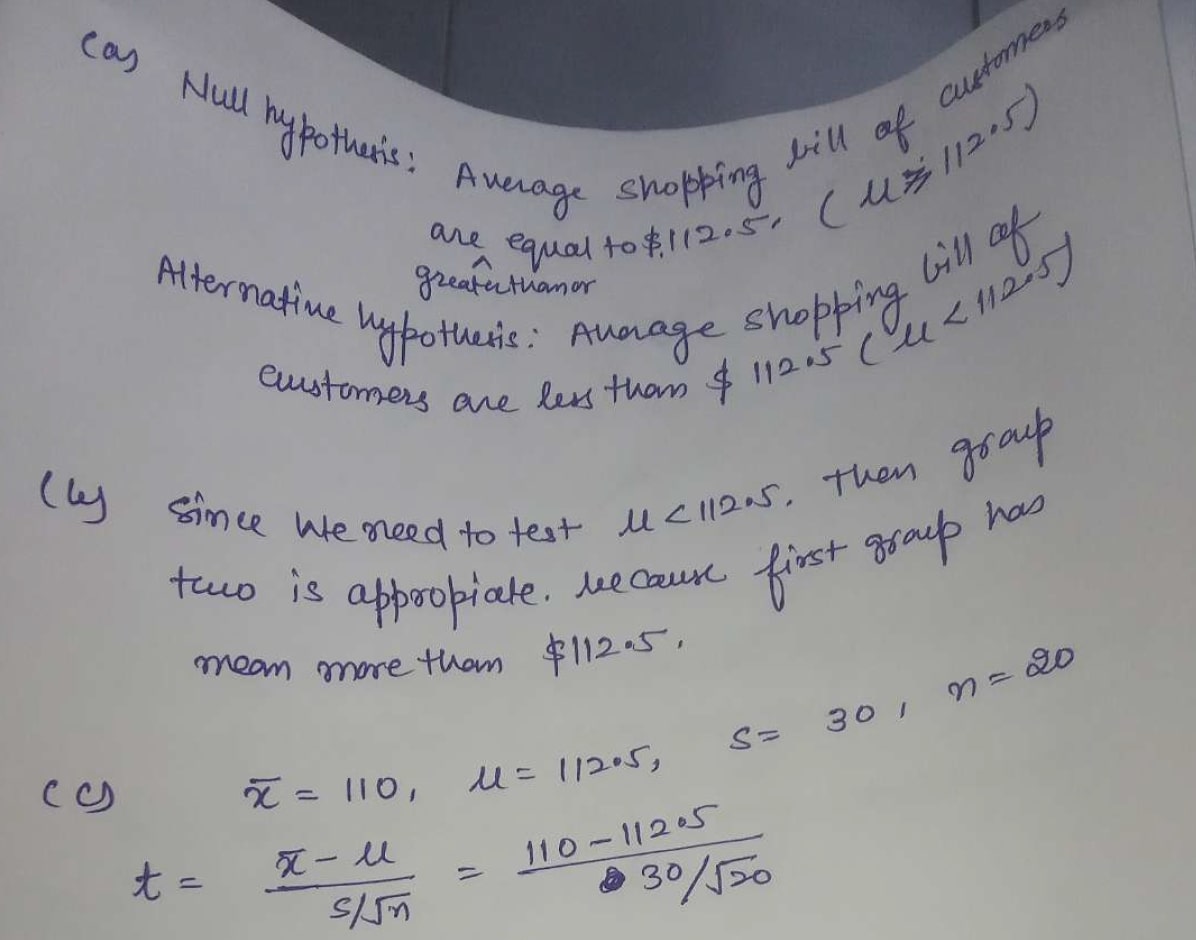 (a) Null hypothesis: Average shopping bill of customers
are equal to $112.5. (μ ⩾ 112.5)
^
greater than or
Alternative hypothesis: Average shopping bill of
customers are less than $ 112.5 (μ < 112.5)
(b) Since we need to test μ < 112.5. Then group
two is appropiate. because first group has
mean more than $112.5.
(c) x̄ = 110, μ = 112.5, S = 30, n = 20
t = (x̄ - μ) / (S/√n) = (110 - 112.5) / (30/√20)